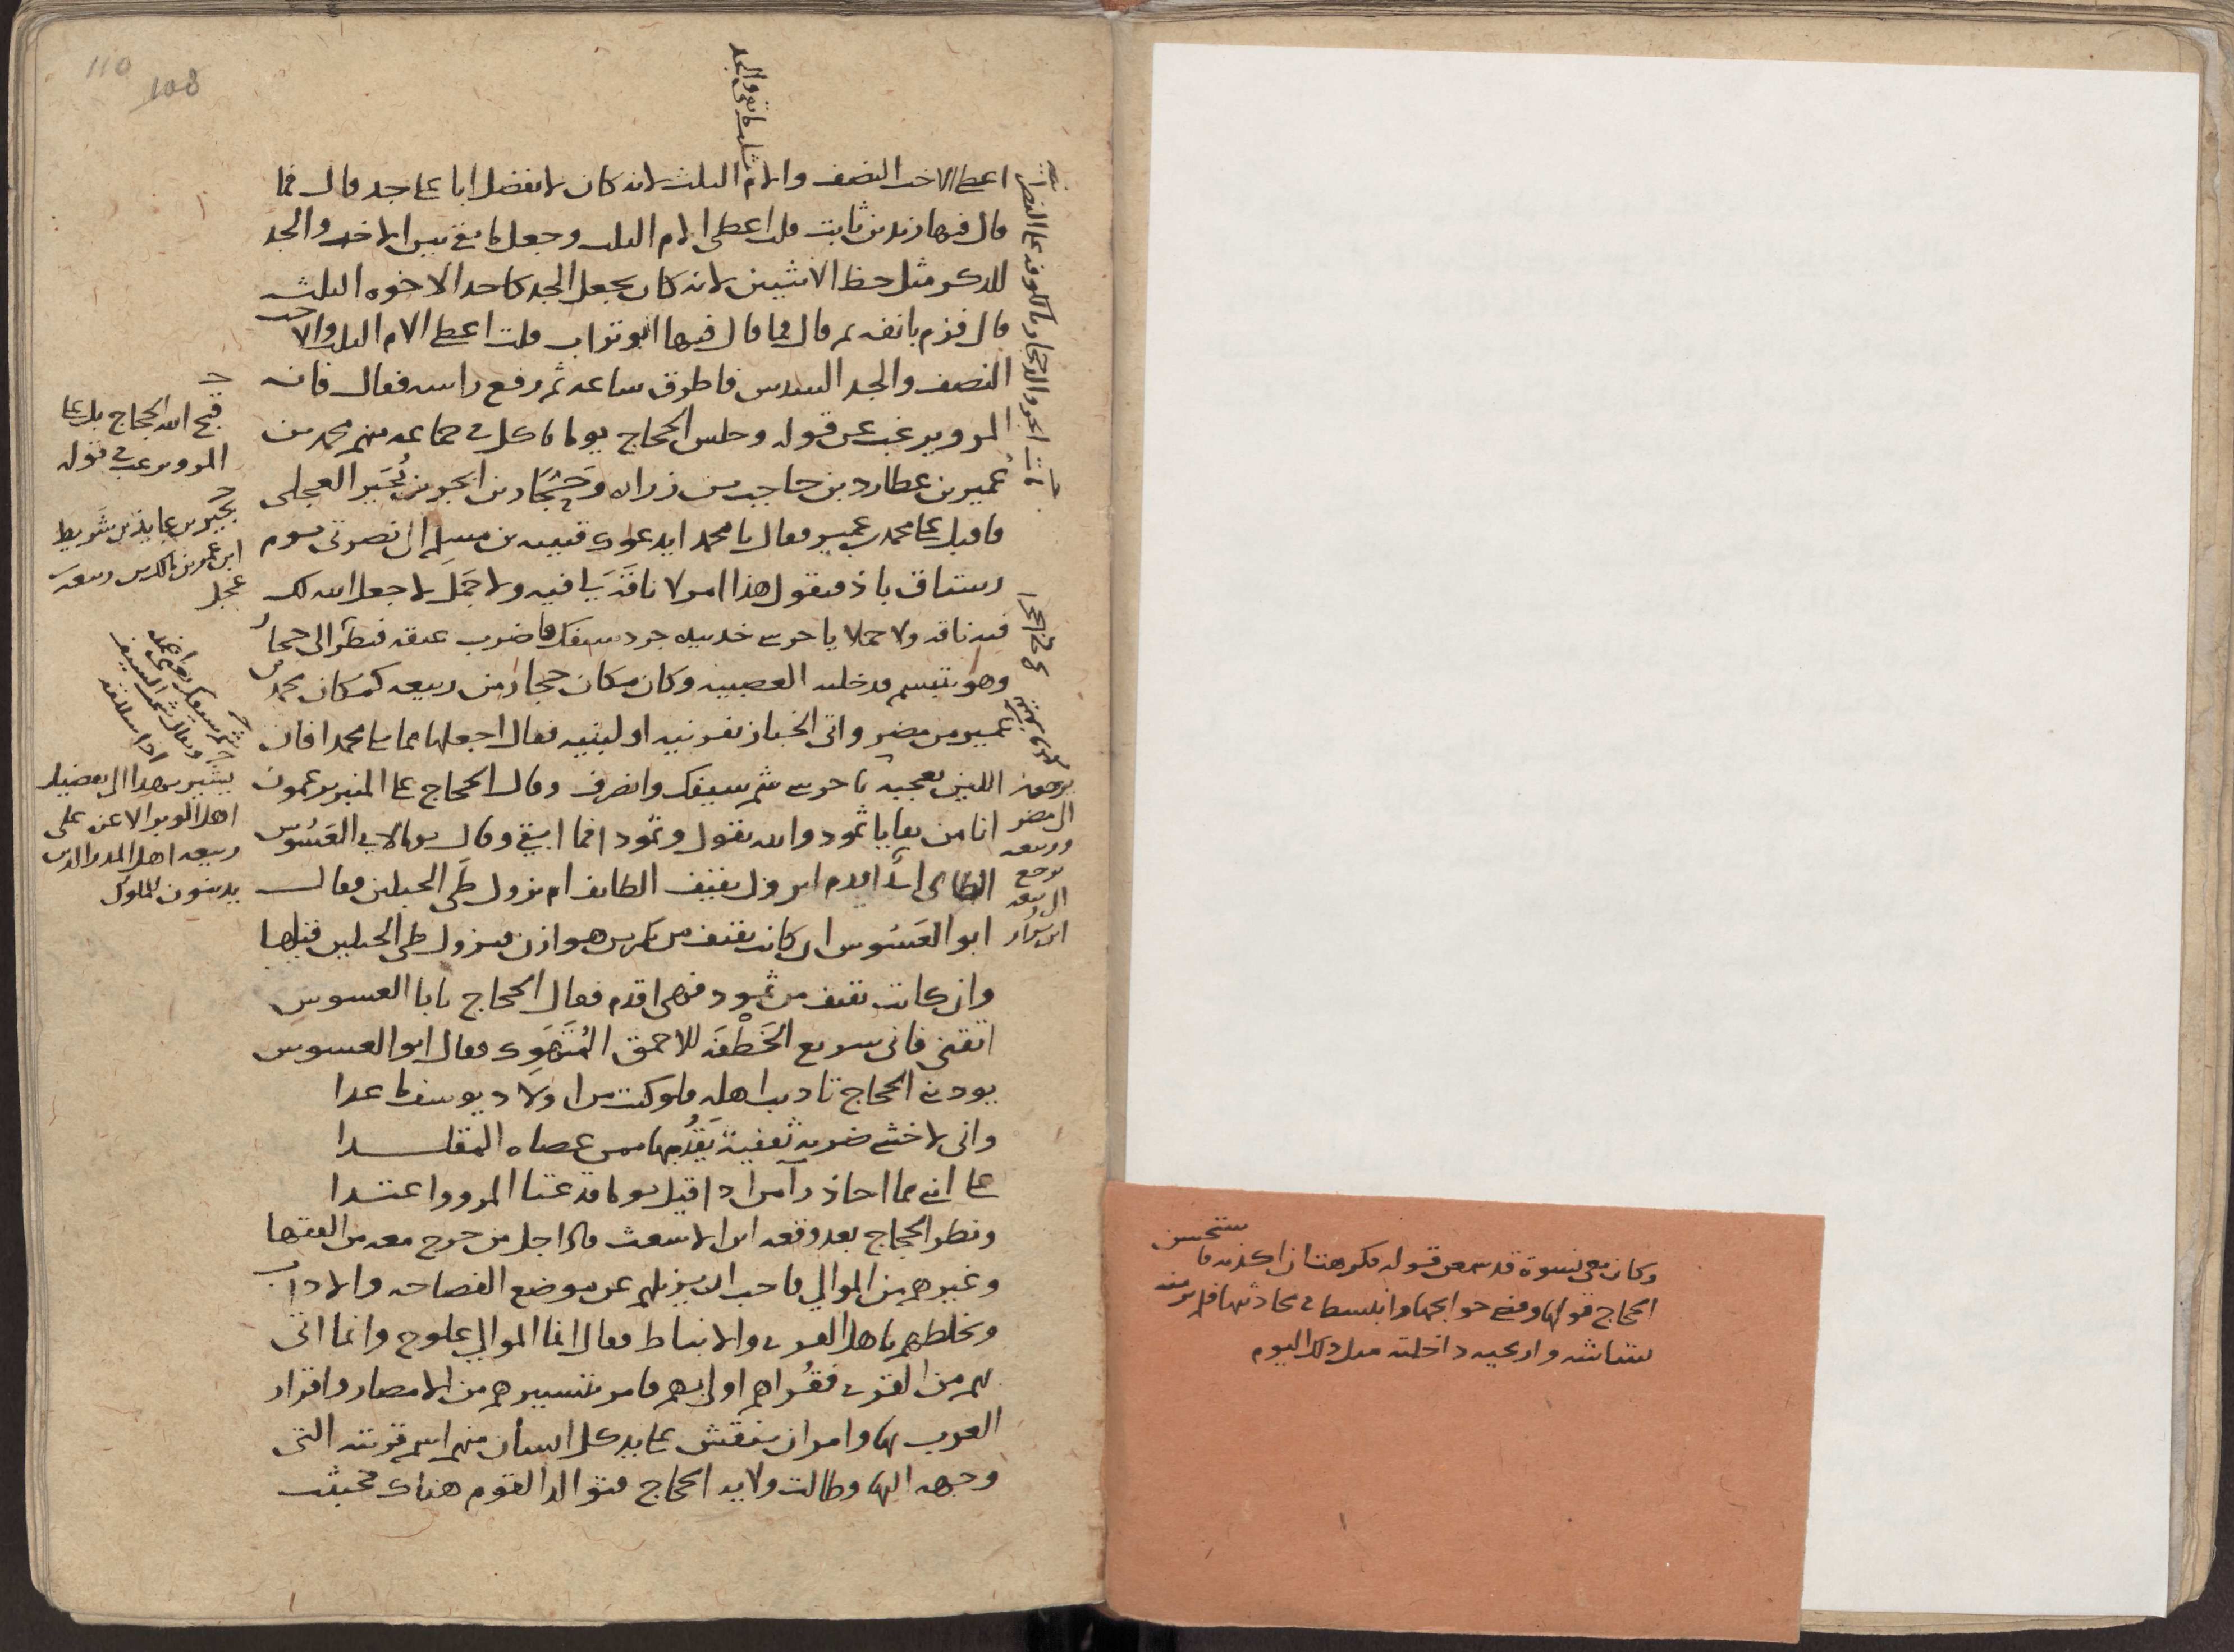 110
108
ثلث ما بقى والجد
اعطى الاخت النصف والام الثلث لانه كان لا يفضل ابا على جد قال فما
قال فيها زيد بن ثابت قلت اعطى الام الثلث وجعل ما بقى بين الاخت والجد
للذكر مثل حظ الانثيين لانه كان يجعل الجد كاحد الاخوه الثلث
قال فزم بانفه ثم قال فما قال فيها ابو تراب قلت اعطى الام الثلث والاخت
النصف والجد السدس فاطرق ساعه ثم رفع راسه فقال فانه
المرو يرغب عن قوله وجلس الحجاج يوما ياكل فى جماعه منهم محمد بن
عمير بن عطارد بن حاجب بن زراره وحجار بن ابجر بن بجير العجلى
فاقبل على محمد بن عمير فقال يا محمد ايدعوك قتيبه بن مسلم الى نصرتى يوم
رستاق باذ فتقول هذا امر لا ناقة لى فيه ولا جمل لا جعل الله لك
فيه ناقه ولا جملا يا حرسى خذ بيده جرد سيفك فاضرب عنقه فنظر الى حجار
وهو يتبسم فدخلته العصبيه وكان مكان حجار من ربيعه كمكان محمد بن
عمير من مضر واتى الخباز بفرنيه او لبنيه فقال اجعلها مما يلى محمدا فان
اللبن يعجبه يا حرسى شم سيفك وانصرف وقال الحجاج على المنبر يزعمون
انا من بقايا ثمود والله يقول وثمود افما ابقى وقال يوما لابى العسوس
الطائى اى اقدم انزول ثقيف الطائف ام نزول طى الجبلين فقال
ابو العسوس ان كانت ثقيف من بكر بن هوازن فنزول طى الجبلين قبلها
وان كانت ثقيف من ثمود فهى اقدم فقال الحجاج يابا العسوس
اتقنى فانى سريع الخطفه للاحمق المتهوك فقال ابو العسوس
يودبنى الحجاج تاديب اهله فلو كنت من اولاد يوسف ما عدا
وانى لاخشى ضربه ثقفية يقد بها ممن عصاه المقلدا
على انى مما احاذر آمن اذا قيل يوما قد عتا المرو واعتدا
ونظر الحجاج بعد وقعه ابن الاشعث فاذا جل من خرج معه من الفقها
وغيرهم من الموالى فاحب ان يزيلهم عن موضع الفصاحه والاداب
ويخلطهم باهل القرى والانباط فقال انما الموالى علوج وانما اتى
بهم من القرى فقراهم اولى بهم فامر بتسييرهم من الامصار واقرار
العرب بها وامر ان ينقش على يد كل انسان منهم اسم قريته التى
وجهه اليها وطالت ولايه الحجاج فتوالد القوم هناك فخبثت
قبح الله الحجاج بل على
المرو يرغب فى قوله
بجير بن عايذ بن شريط
ابن عمرو بن مالك بن ربيعه
عجل
يشير بهذا الى تفضيل
اهل الوبر الاعز على
ربيعه اهل المدر الذين
يدينون للملوك
الى مضر
وربيعه
يرجع
ابن نزار
وكان معى نسوة قد سمعن قوله فكرهت ان اكذبه فاستحسن
الحجاج قولها وقضى حوائجها وانبسط فى محادثتها فلم ير منه
بشاشه واريحيه داخلته مثل ذلك اليوم